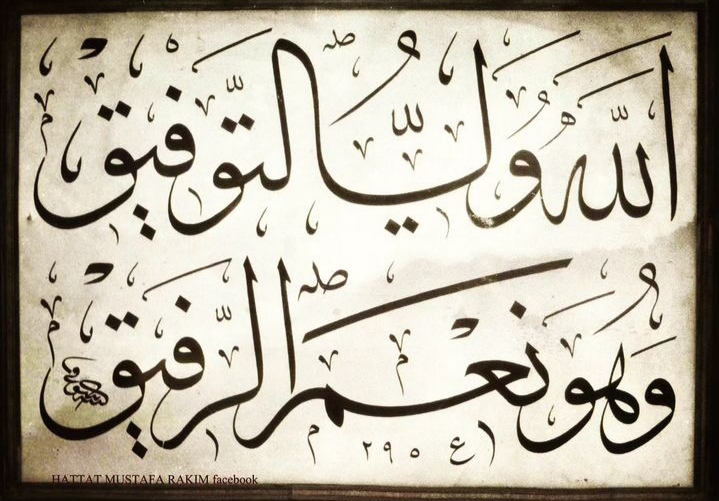 الله ولي التوفيق
وهو نعم الرفيق
HATTAT MUSTAFA RAKIM facebook